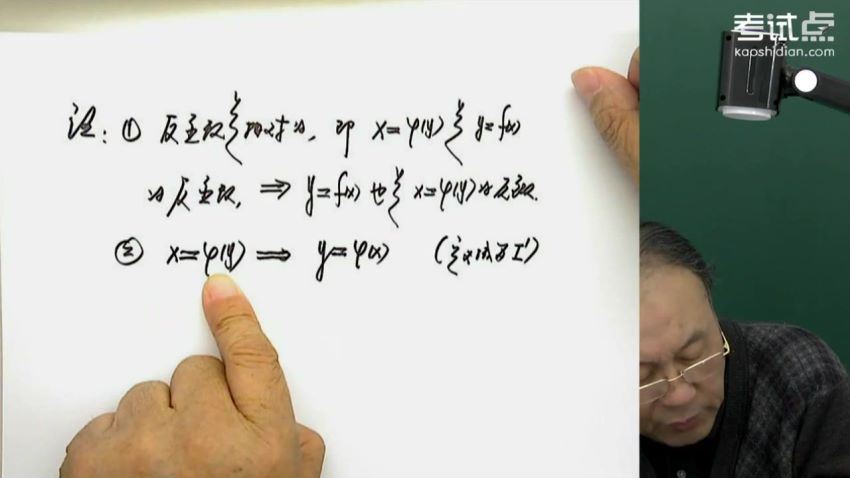 考试点
kaoshidian.com
注：① 反函数是相对的，即 x=φ(y) 是 y=f(x)
的反函数，⇒ y=f(x) 也是 x=φ(y) 的反函数.
② x=φ(y) ⇒ y=φ(x) (定义域为 I')